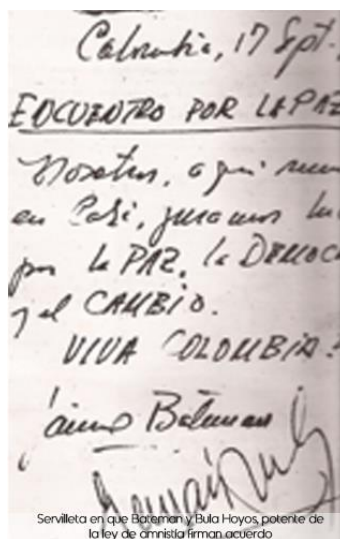 Colombia, 17 Sept.
ENCUENTRO POR LA PAZ
Nosotros, aquí
en Cali, juramos
por la PAZ, la DEMOC
y el CAMBIO.
VIVA COLOMBIA!
Jaime Bateman
Germán Bula
Servilleta en que Bateman y Bula Hoyos, potente de
la ley de amnistía firman acuerdo